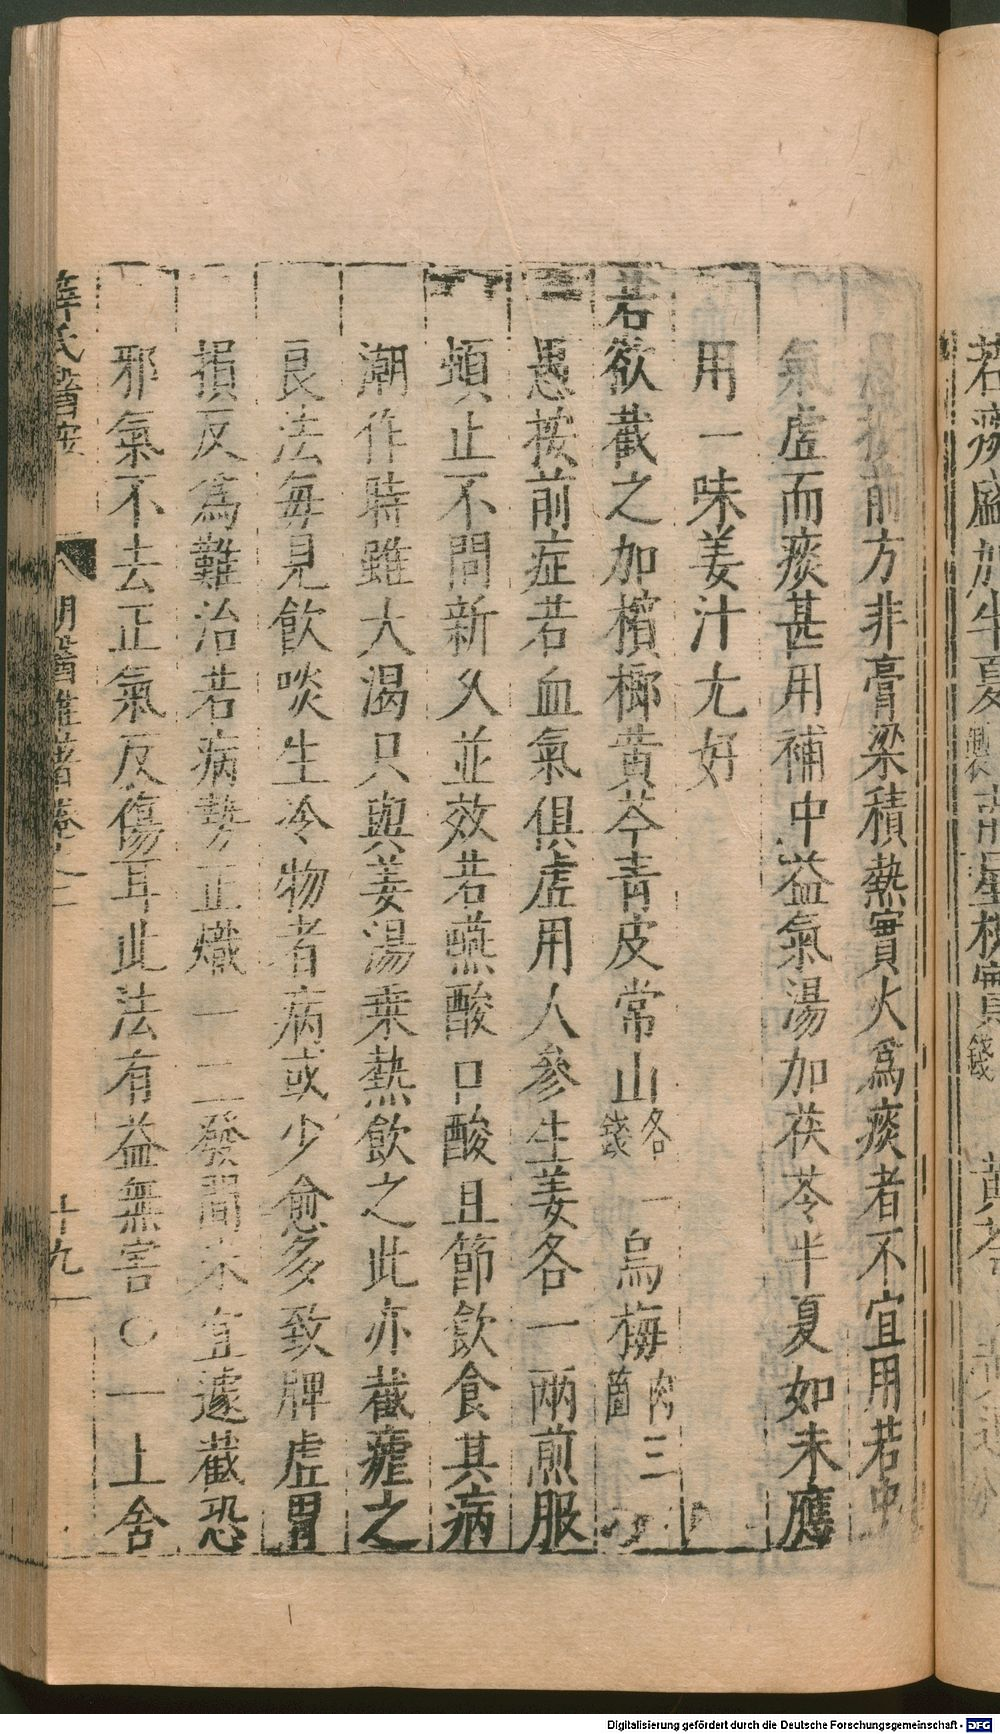 若痰盛加半夏
黄芩
按前方非膏梁積熱實火爲痰者不宜用若中
氣虛而痰甚用補中益氣湯加茯苓半夏如未應
用一味姜汁尢好
若欲截之加檳榔黄芩青皮常山各一錢烏梅肉三箇
愚按前症若血氣俱虛用人參生姜各一兩煎服
頓止不問新久並效若嚥酸口酸且節飲食其病
潮作時雖大渴只與姜湯乗熱飲之此亦截瘧之
良法每見飲啖生冷物者病或少愈多致脾虛胃
損反爲難治若病勢正熾一二發間未宜遽截恐
邪氣不去正氣反傷耳此法有益無害○一上舍
薛氏醫按 明醫雜著卷之二 十九
Digitalisierung gefördert durch die Deutsche Forschungsgemeinschaft - DFG